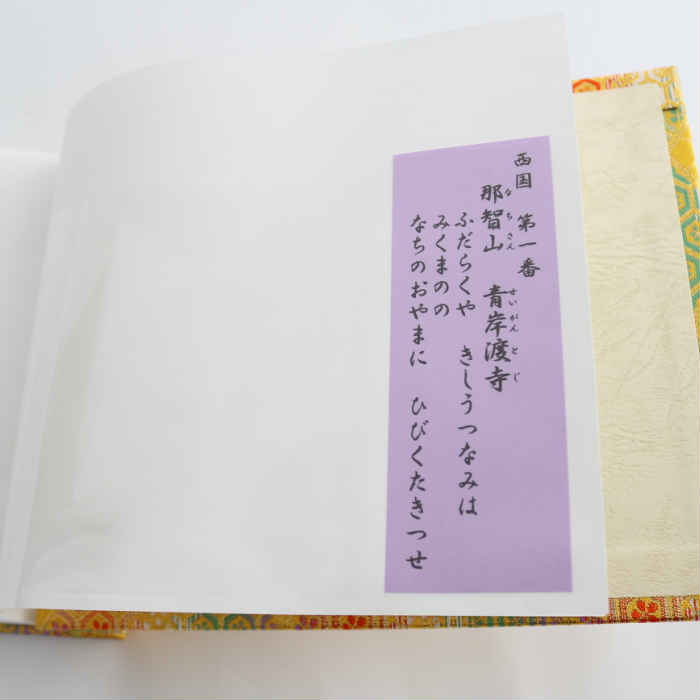 西国 第一番
那智山 青岸渡寺
なちさん せいがんとじ
ふだらくや きしうつなみは
みくまのの
なちのおやまに ひびくたきつせ